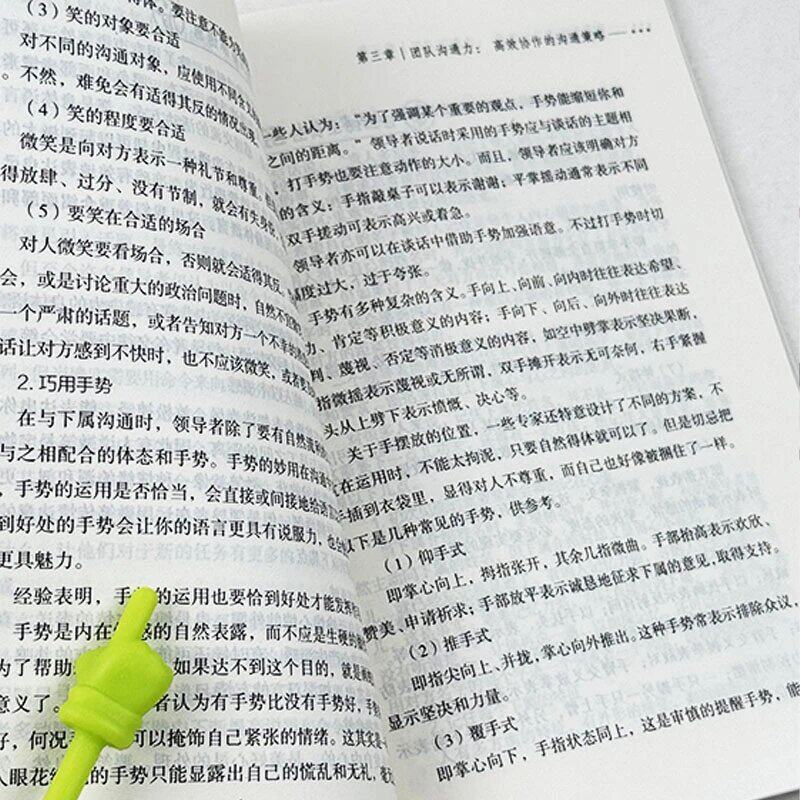 （3）笑的对象要合适
对不同的沟通对象，应使用不同含
。不然，难免会有适得其反的情况出现
（4）笑的程度要合适
微笑是向对方表示一种礼节和尊重。
得放肆、过分、没有节制，就会有失身份
（5）要笑在合适的场合
对人微笑要看场合，否则就会适得其反。
会，或是讨论重大的政治问题时，自然不
一个严肃的话题，或者告知对方一个不幸的
话让对方感到不快时，也不应该微笑，或者要
2. 巧用手势
在与下属沟通时，领导者除了要有自然
与之相配合的体态和手势。手势的妙用在沟通
，手势的运用是否恰当，会直接或间接地给
到好处的手势会让你的语言更具有说服力，也
更具魅力。
经验表明，手 的运用也要恰到好处才能发挥
手势是内在 感的自然表露，而不应是生硬
为了帮助 如果达不到这个目的，就是
意义了。 者认为有手势比没有手势好，手
好，何况手 可以掩饰自己紧张的情绪。这其实是
人眼花 的手势只能显露出自己的慌乱和无礼，
第三章 | 团队沟通力： 高效协作的沟通策略
一些人认为：“为了强调某个重要的观点，手势能缩短你和
之间的距离。”领导者说话时采用的手势应与谈话的主题相
，打手势也要注意动作的大小。而且，领导者应该明确对方
的含义；手指敲桌子可以表示谢谢；平掌摇动通常表示不同
双手搓动可表示高兴或着急。
领导者亦可以在谈话中借助手势加强语意。不过打手势时切
幅度过大，过于夸张。
手势有多种复杂的含义。手向上、向前、向内时往往表达希望、
、肯定等积极意义的内容；手向下、向后、向外时往往表达
判、蔑视、否定等消极意义的内容，如空中劈掌表示坚决果断，
指微摇表示蔑视或无所谓，双手摊开表示无可奈何，右手紧握
头从上劈下表示愤慨、决心等。
关于手摆放的位置，一些专家还特意设计了不同的方案，不
在运用时，不能太拘泥，只要自然得体就可以了。但是切忌把
手插到衣袋里，显得对人不尊重，而自己也好像被捆住了一样。
以下是几种常见的手势，供参考。
（1）仰手式
即掌心向上，拇指张开，其余几指微曲。手部抬高表示欢欣、
赞美、申请祈求；手部放平表示诚恳地征求下属的意见，取得支持。
（2）推手式
即指尖向上、并拢，掌心向外推出。这种手势常表示排除众议，
显示坚决和力量。
（3）覆手式
即掌心向下，手指状态同上，这是审慎的提醒手势，能